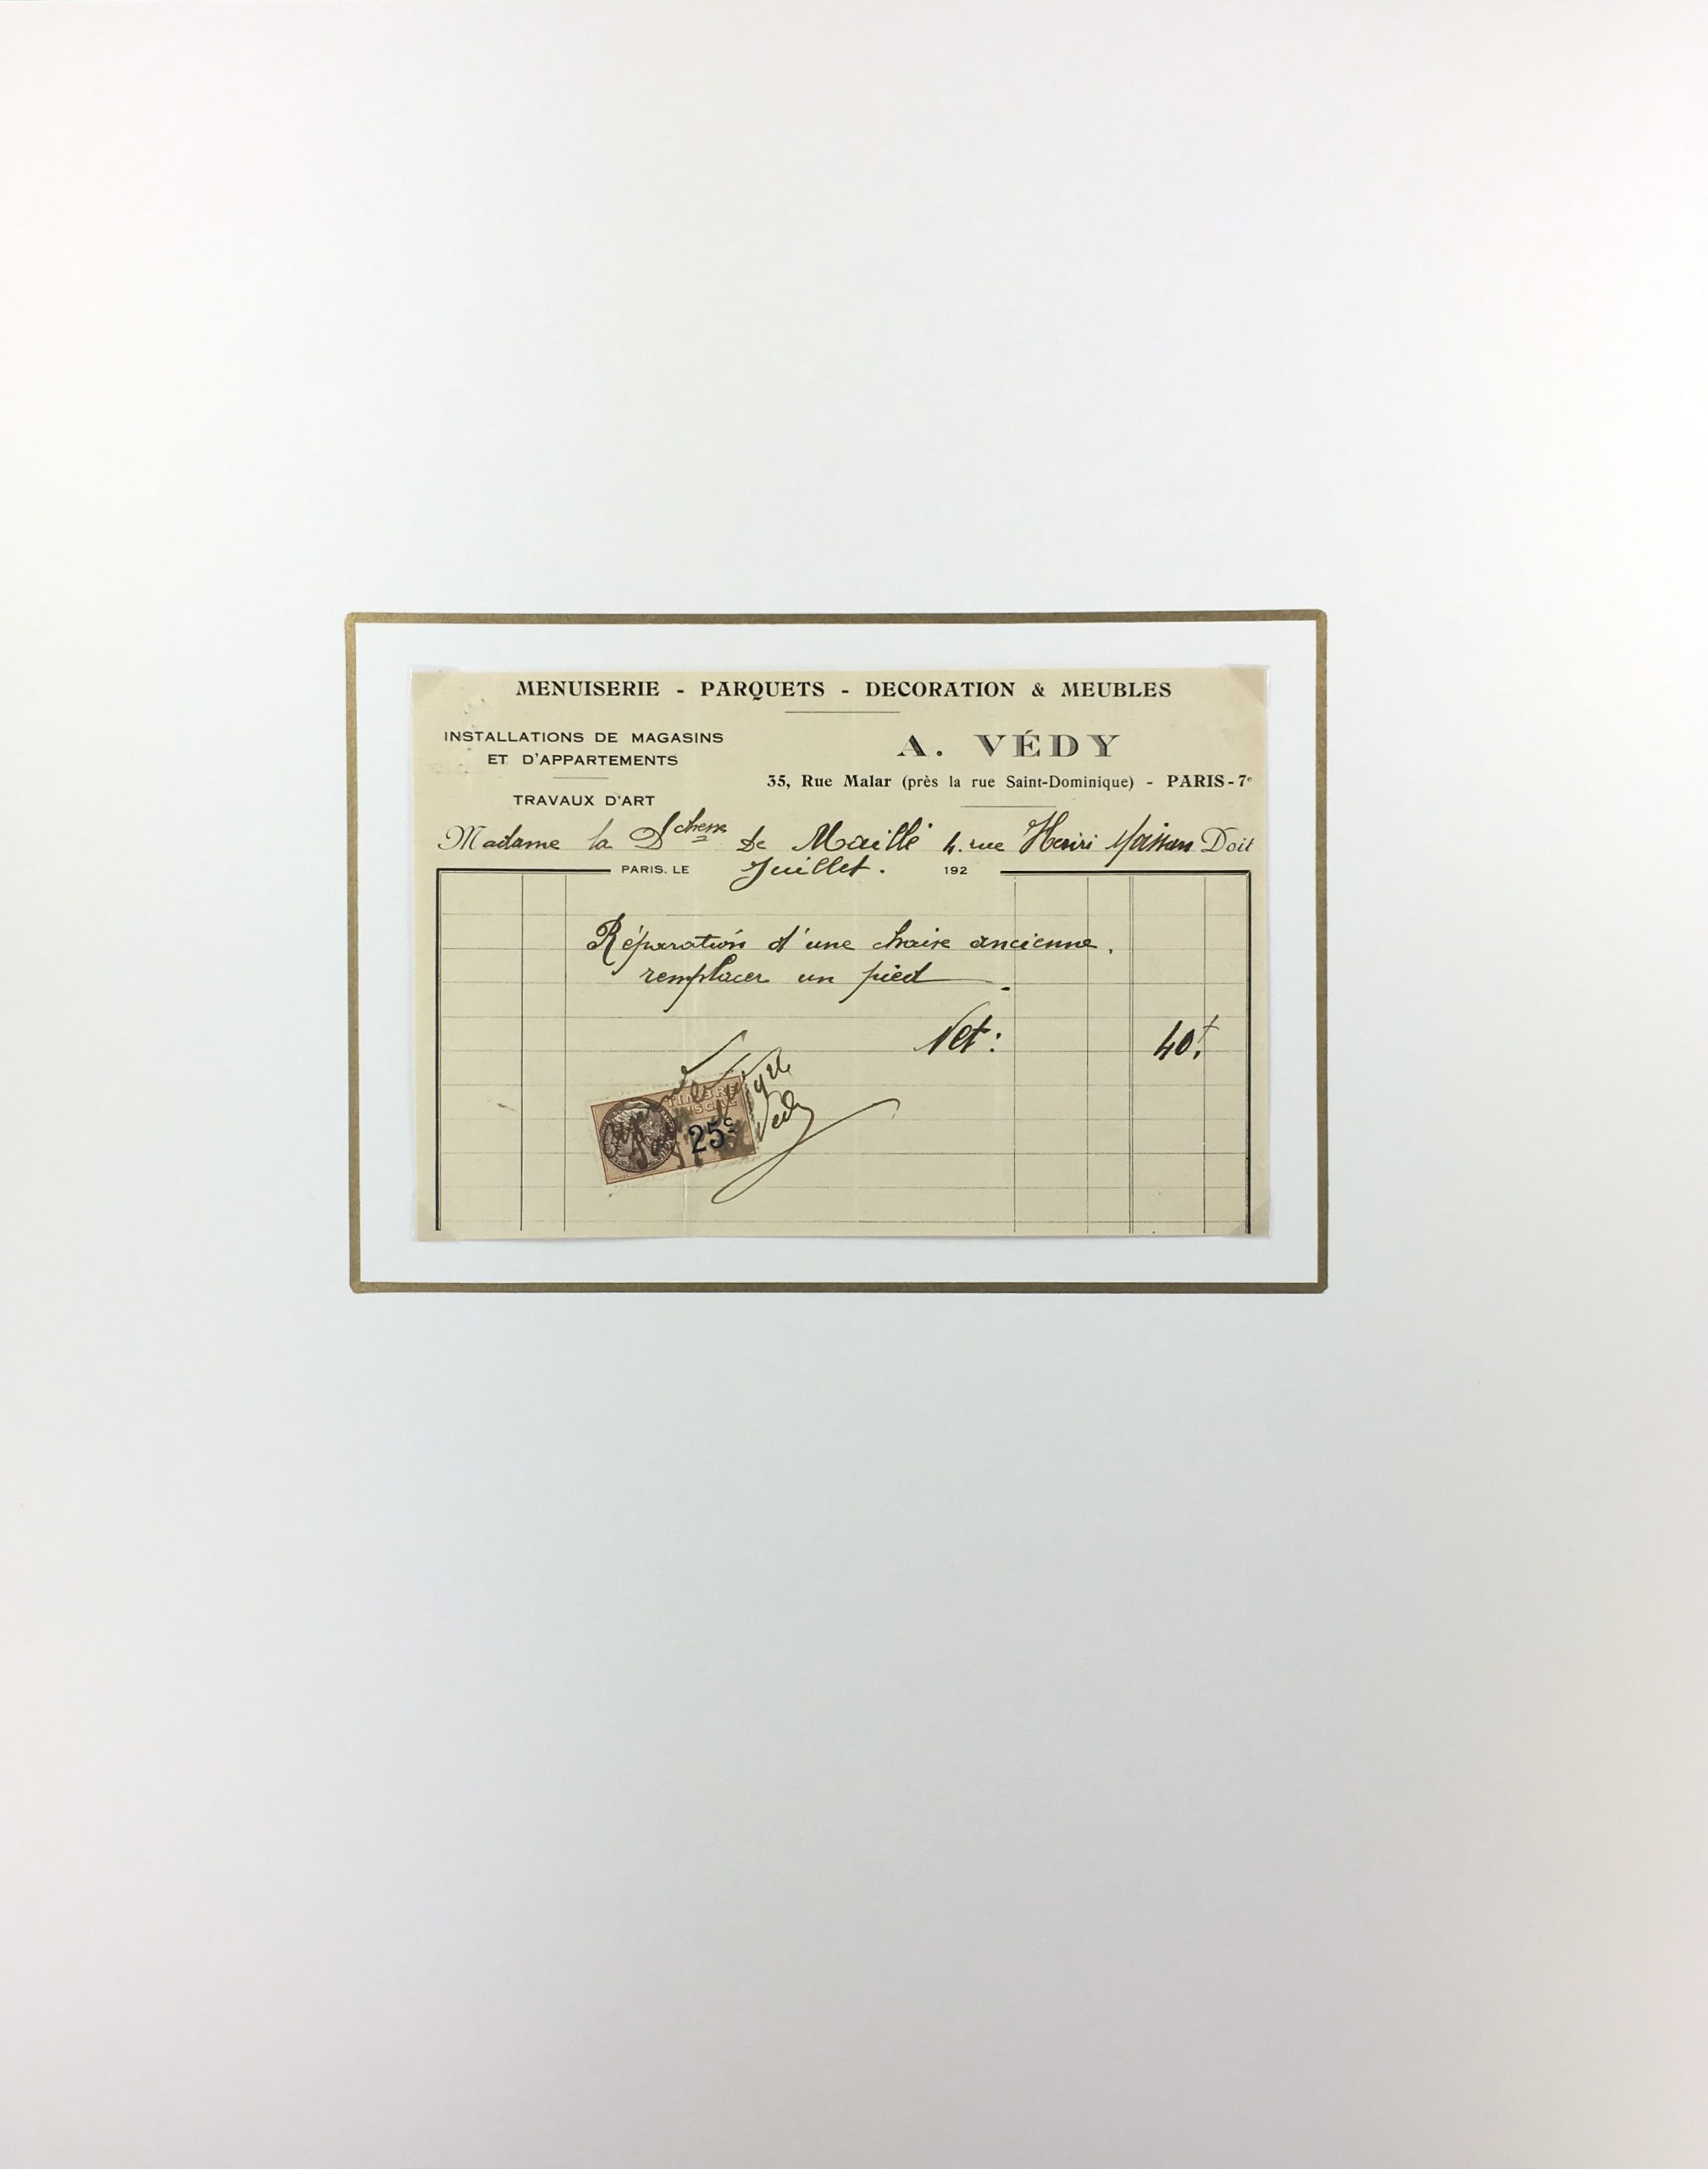 MENUISERIE - PARQUETS - DECORATION & MEUBLES
INSTALLATIONS DE MAGASINS
ET D'APPARTEMENTS
TRAVAUX D'ART
A. VÉDY
35, Rue Malar (près la rue Saint-Dominique) - PARIS-7e
Madame la Dchesse de Maillé 4. rue Henri Doit
PARIS. LE Juillet. 192
Réparation d'une chaise ancienne.
remplacer un pied.
Net: 40.f
TIMBRE
FISCAL
25c
Vedy